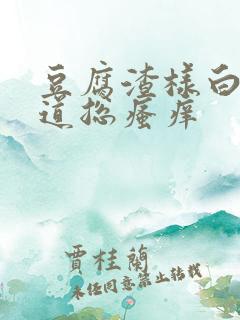 豆腐渣样白
道总瘙痒
賈桂蘭
未经同意禁止转载